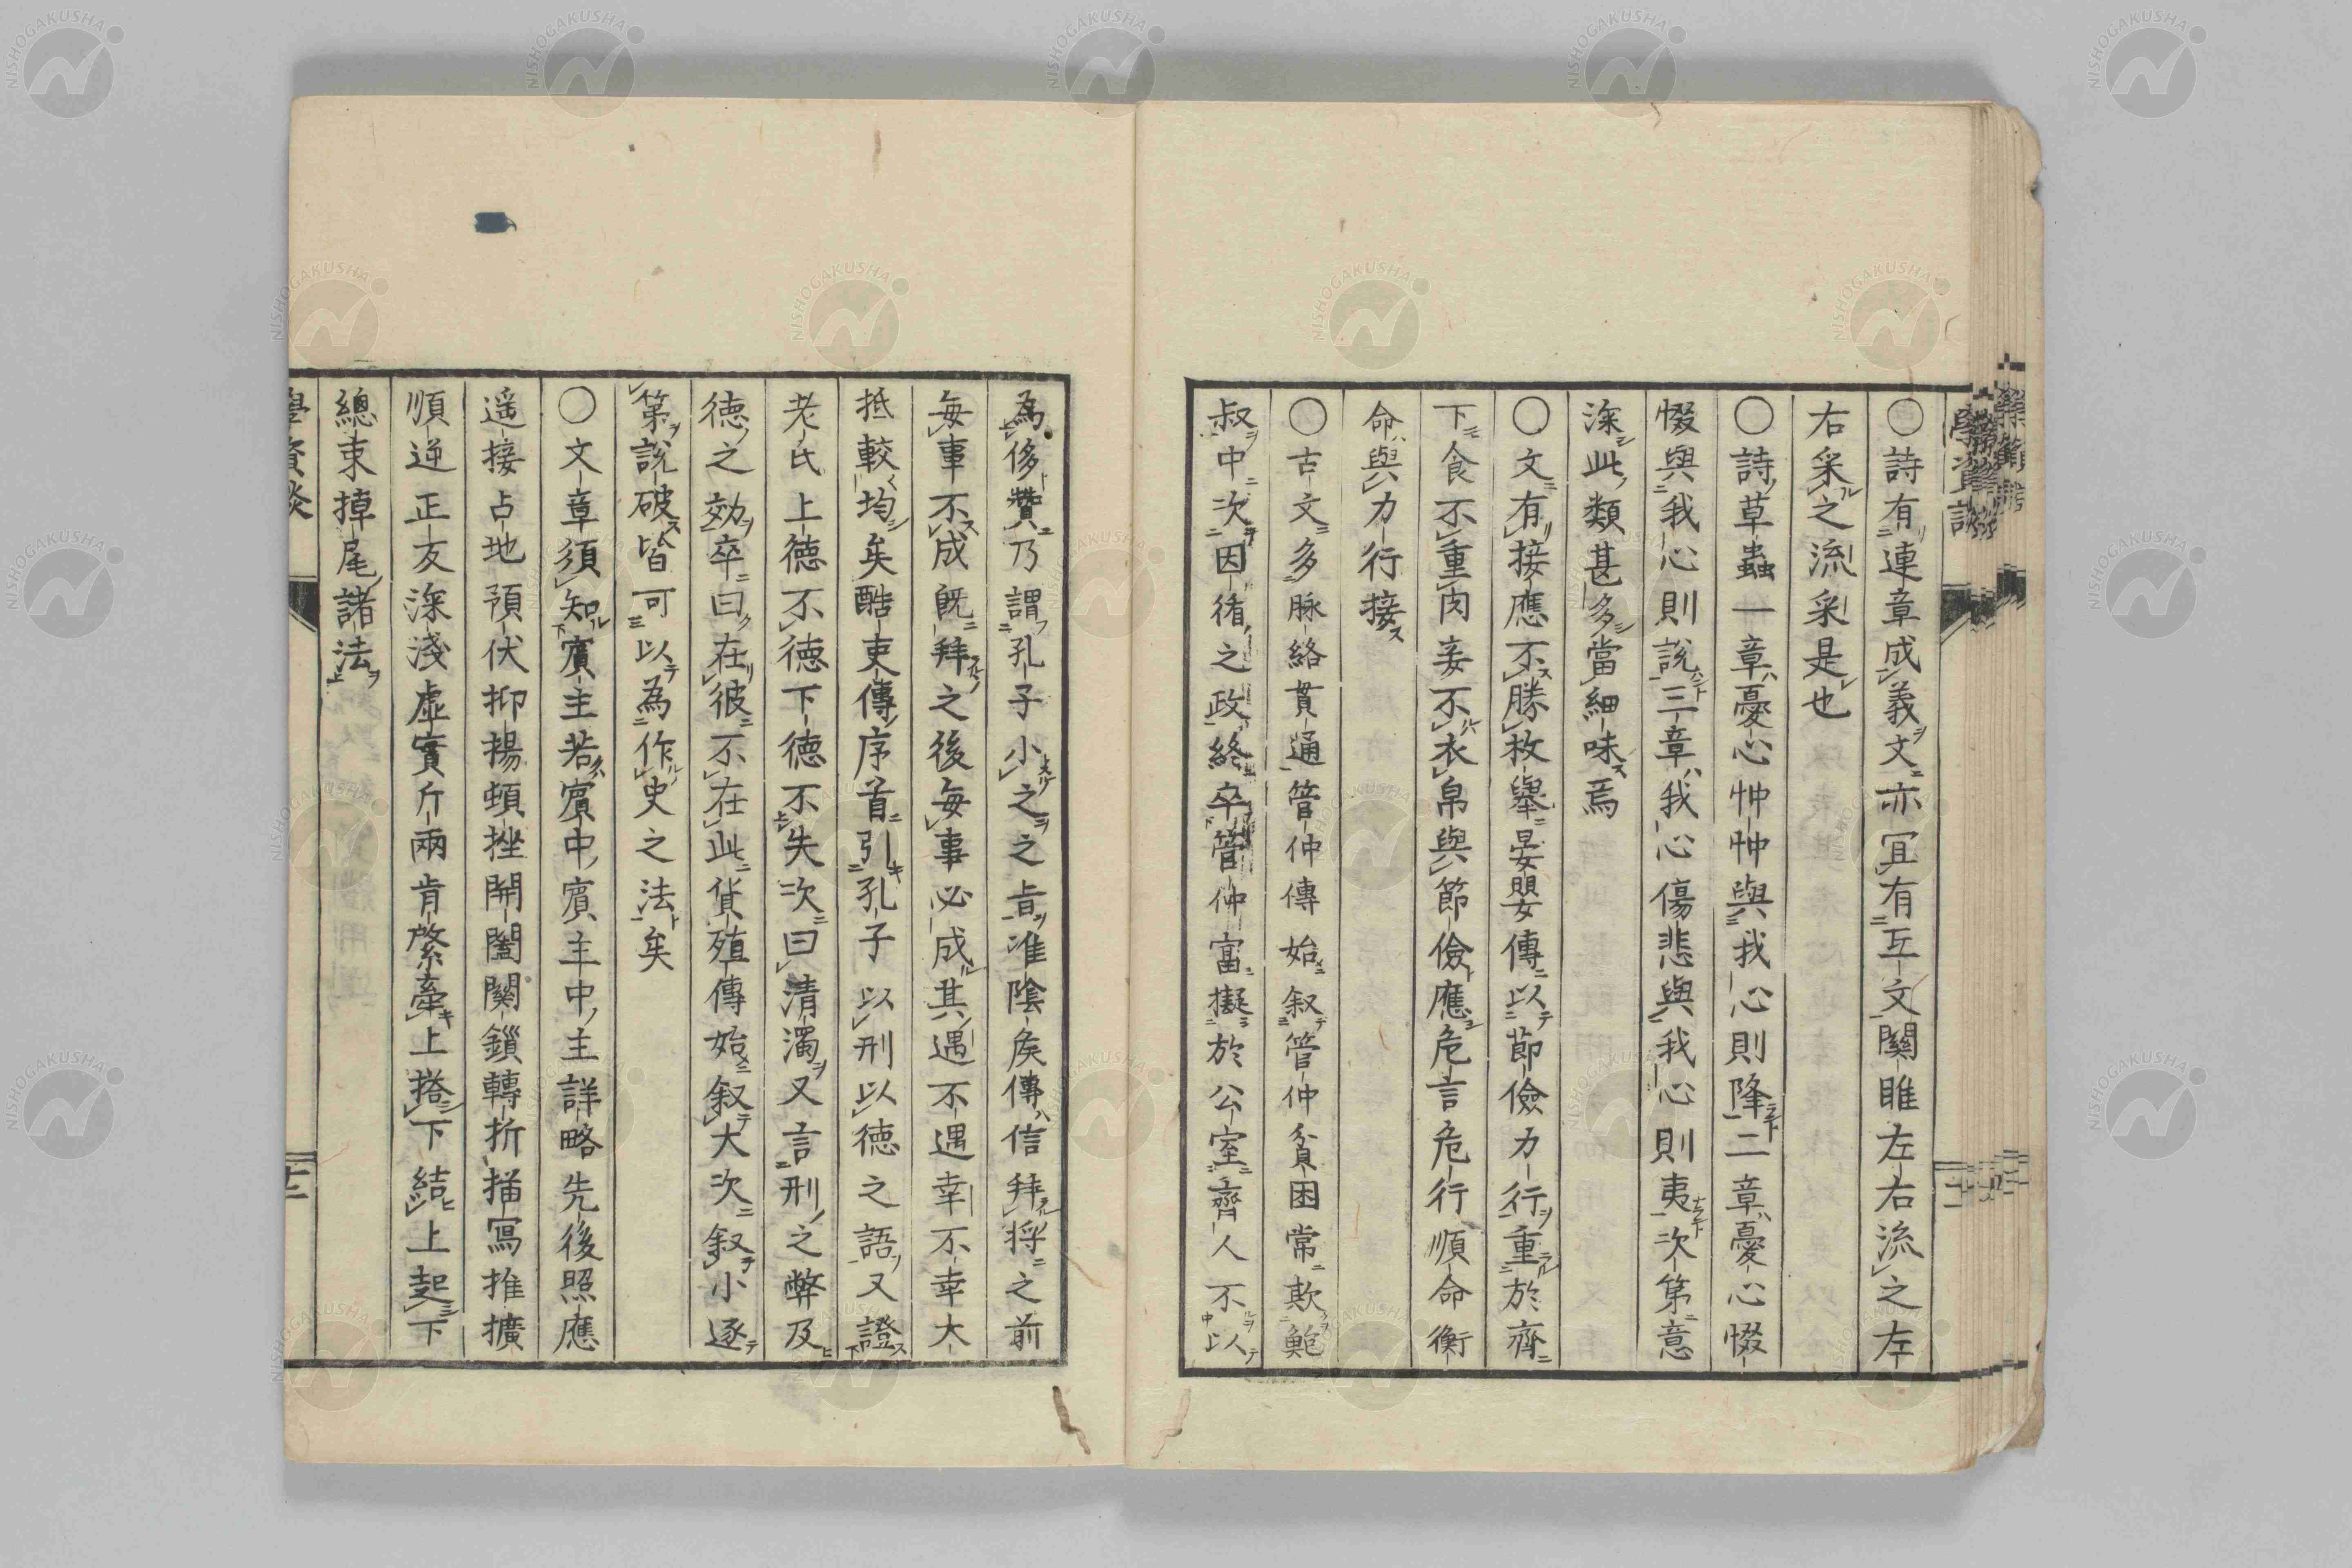 〇詩有連章成義文亦冝有互文關睢左右流之左
右采之流采是也
〇詩草蟲一章憂心忡忡與我心則降二章憂心惙
惙與我心則說三章我心傷悲與我心則夷次第意
深此類甚多當細味焉
〇文有接應不勝枚舉晏嬰傳以節儉力行重於齊
下食不重肉妾不衣帛與節儉應危言危行順命衡
命與力行接
〇古文多脉絡貫通管仲傳始叙管仲貧困常欺鮑
叔中次因循之政終卒管仲富擬於公室齊人不以
為侈贊乃謂孔子小之之旨淮陰矦傳信拜將之前
每事不成既拜之後每事必成其遇不遇幸不幸大
抵較均矣酷吏傳序首引孔子以刑以德之語又證
老氏上德不德下德不失次曰清濁又言刑之弊及
德之効卒曰在彼不在此貨殖傳始叙大次叙小逐
第說破皆可以為作史之法矣
〇文章須知賓主若賓中賓主中主詳略先後照應
遥接占地預伏抑揚頓挫開闔關鎖轉折描寫推擴
順逆正反深淺虛實斤兩肯綮牽上搭下結上起下
總束掉尾諸法
學資談
十二
NISHOGAKUSHA